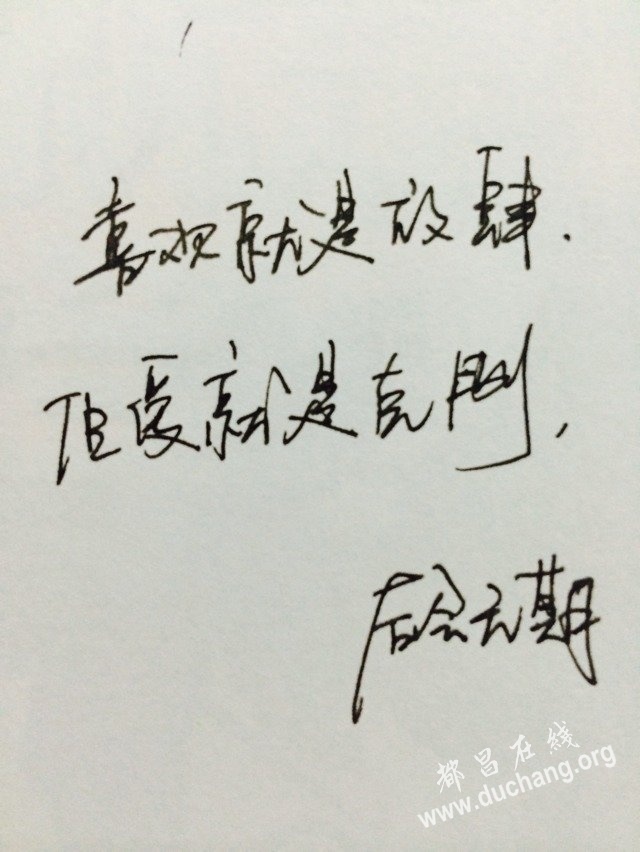 喜欢就是放肆.
但爱就是克制,
后会无期
都昌在线
www.duchang.org